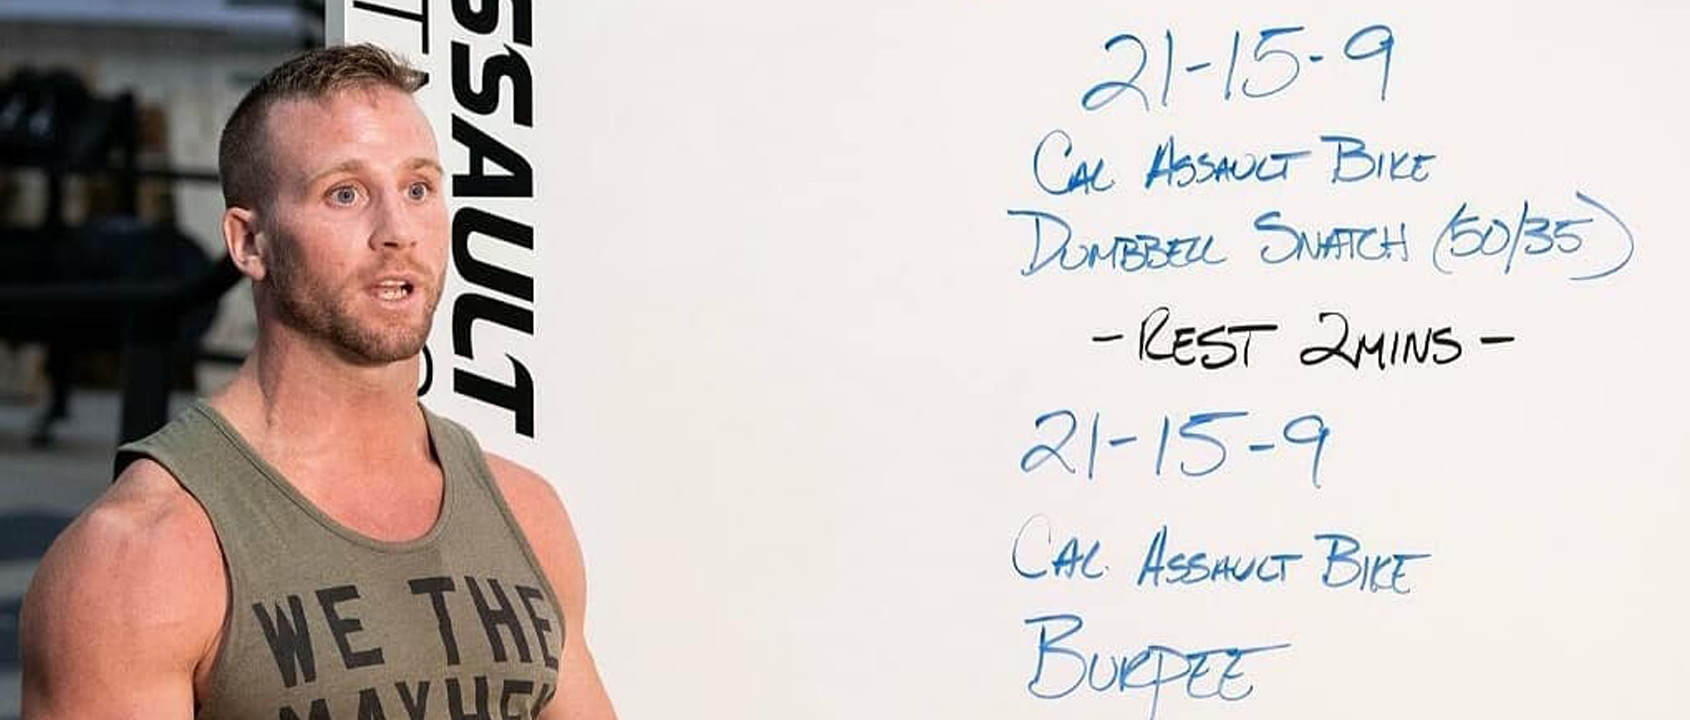 SSAULT
21-15-9
CAL ASSAULT BIKE
DUMBBELL SNATCH (50/35)
-REST 2MINS-
21-15-9
CAL. ASSAULT BIKE
BURPEE
WE THE
MAYHEM